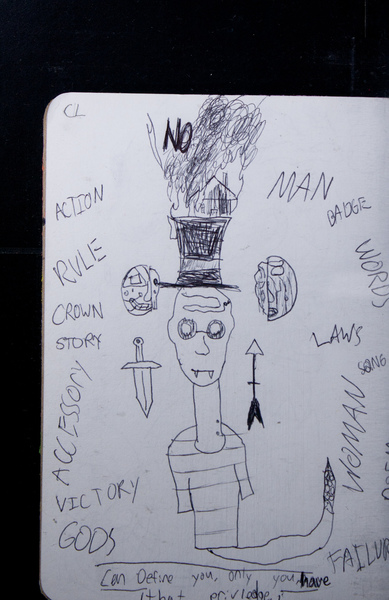 CL
NO
MAN
ACTION
BADGE
RULE
WORDS
CROWN
STORY
LAWS
SONG
ACCESSORY
WOMAN
VICTORY
GODS
FAILUR
Can Define you, only you have
that priviledge!